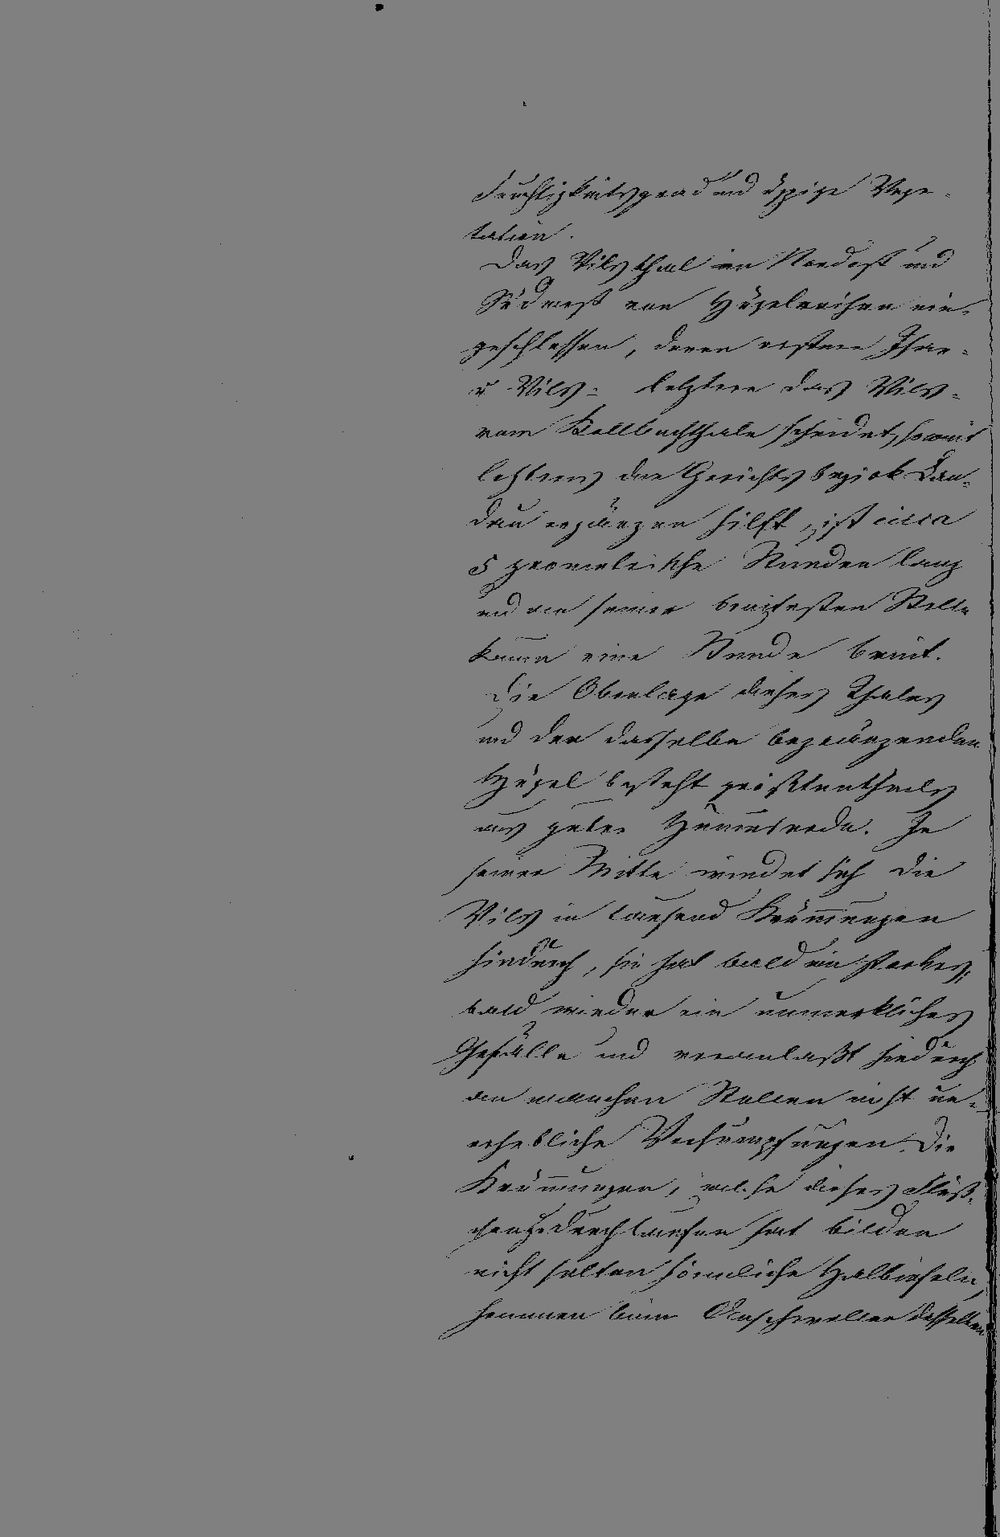 Feuchtigkeitsgrad und üppige Vege-
tation.
Das Vilsthal im Nordost und
Südwest von Hügelreihen ein-
geschlossen, deren erstere Isar-
u Vils- letztere das Vils-
vom Kollbachthale scheidet, somit
letzteres den Gerichtsbezirk Lan-
dau ergänzen hilft, ist circa
5 geometrische Stunden lang
und an seiner breitesten Stelle
kaum eine Stunde breit.
Die Oberlage dieses Thales
und der dasselbe begränzenden
Hügel besteht größtentheils
aus guter Humuserde. In
seiner Mitte windet sich die
Vils in tausend Krümmungen
hindurch, sie hat bald ein starkes,
bald wieder ein unmerkliches
Gefälle und veranlaßt hiedurch
an manchen Stellen nicht un-
erhebliche Versumpfungen. Die
Krümmungen, welche dieses Flüß-
chen zu durchlaufen hat bilden
nicht selten förmliche Halbinseln,
hemmen beim Anschwellen desselben